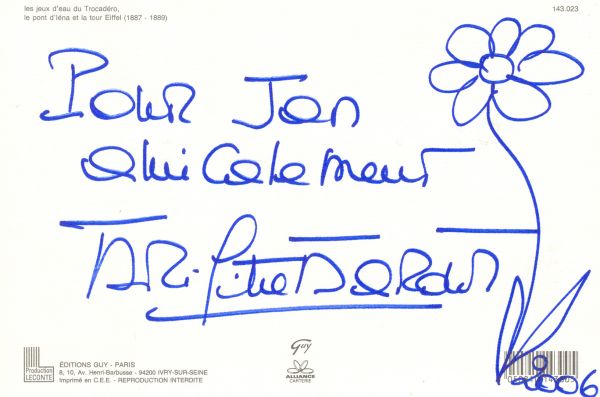 les jeux d'eau du Trocadéro,
le pont d'Iéna et la tour Eiffel (1887 - 1889)
143.023
Pour Jan
amicalement
Production
LECONTE
ÉDITIONS GUY - PARIS
8, 10, Av. Henri-Barbusse - 94200 IVRY-SUR-SEINE
Imprimé en C.E.E. - REPRODUCTION INTERDITE
Guy
ALLIANCE
CARTERIE
2006